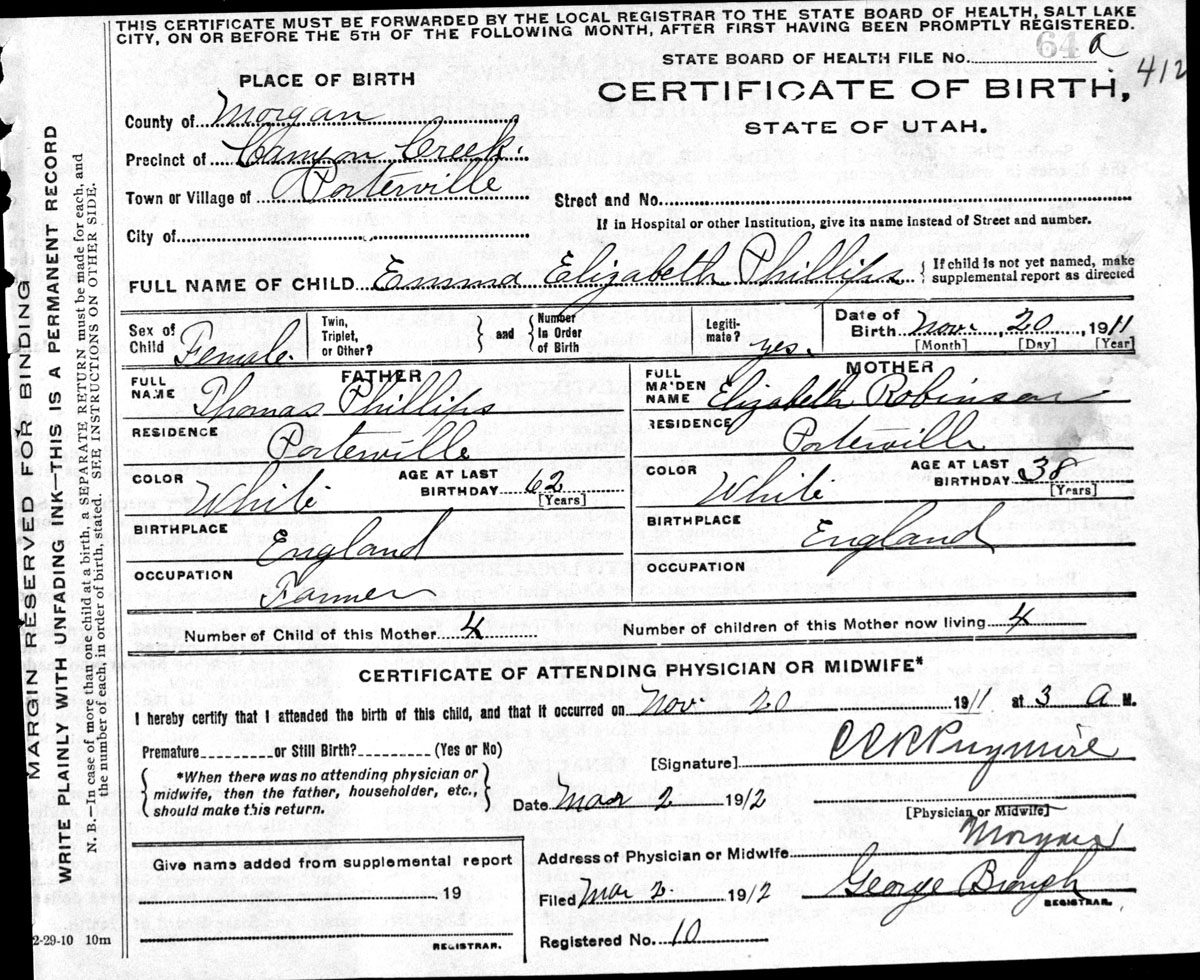 THIS CERTIFICATE MUST BE FORWARDED BY THE LOCAL REGISTRAR TO THE STATE BOARD OF HEALTH, SALT LAKE
CITY, ON OR BEFORE THE 5TH OF THE FOLLOWING MONTH, AFTER FIRST HAVING BEEN PROMPTLY REGISTERED.
STATE BOARD OF HEALTH FILE No. 64 a
412
PLACE OF BIRTH
CERTIFICATE OF BIRTH,
STATE OF UTAH.
County of Morgan
Precinct of Canyon Creek.
Town or Village of Porterville
Street and No.
If in Hospital or other Institution, give its name instead of Street and number.
City of
FULL NAME OF CHILD Emma Elizabeth Phillips { If child is not yet named, make
supplemental report as directed
Sex of
Child Female.
Twin,
Triplet,
or Other?
} and { Number
in Order
of Birth
Legiti-
mate? yes.
Date of
Birth Nov. 20 1911
[Month] [Day] [Year]
FATHER
FULL
NAME Thomas Phillips
RESIDENCE Porterville
COLOR White
AGE AT LAST
BIRTHDAY 62
[Years]
BIRTHPLACE England
OCCUPATION Farmer
MOTHER
FULL
MAIDEN
NAME Elizabeth Robinson
RESIDENCE Porterville
COLOR White
AGE AT LAST
BIRTHDAY 38
[Years]
BIRTHPLACE England
OCCUPATION
Number of Child of this Mother 4
Number of children of this Mother now living 4
CERTIFICATE OF ATTENDING PHYSICIAN OR MIDWIFE*
I hereby certify that I attended the birth of this child, and that it occurred on Nov. 20 1911 at 3 a M.
Premature or Still Birth? (Yes or No)
{ *When there was no attending physician or
midwife, then the father, householder, etc.,
should make this return. }
[Signature]
Date Mar 2 1912
[Physician or Midwife]
Address of Physician or Midwife Morgan
Filed Mar 2 1912 George Brough
REGISTRAR.
Registered No. 10
Give name added from supplemental report
19
REGISTRAR.
2-29-10 10m
MARGIN RESERVED FOR BINDING
WRITE PLAINLY WITH UNFADING INK—THIS IS A PERMANENT RECORD
N. B.—In case of more than one child at a birth, a SEPARATE RETURN must be made for each, and
the number of each, in order of birth, stated. SEE INSTRUCTIONS ON OTHER SIDE.